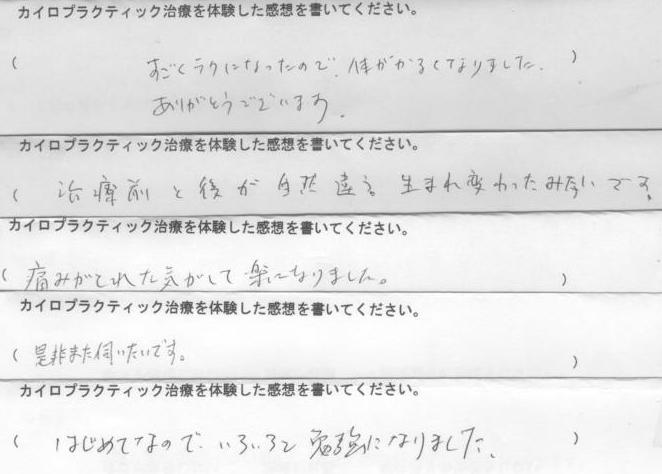 カイロプラクティック治療を体験した感想を書いてください。
( すごくラクになったので、体がかるくなりました。 )
ありがとうございます。
カイロプラクティック治療を体験した感想を書いてください。
( 治療前と後が全然違る 生まれ変わったみたいです。
カイロプラクティック治療を体験した感想を書いてください。
( 痛みがとれた気がして楽になりました。 )
カイロプラクティック治療を体験した感想を書いてください。
( 是非また伺いたいです。 )
カイロプラクティック治療を体験した感想を書いてください。
( はじめてなので、いろいろと勉強になりました。 )